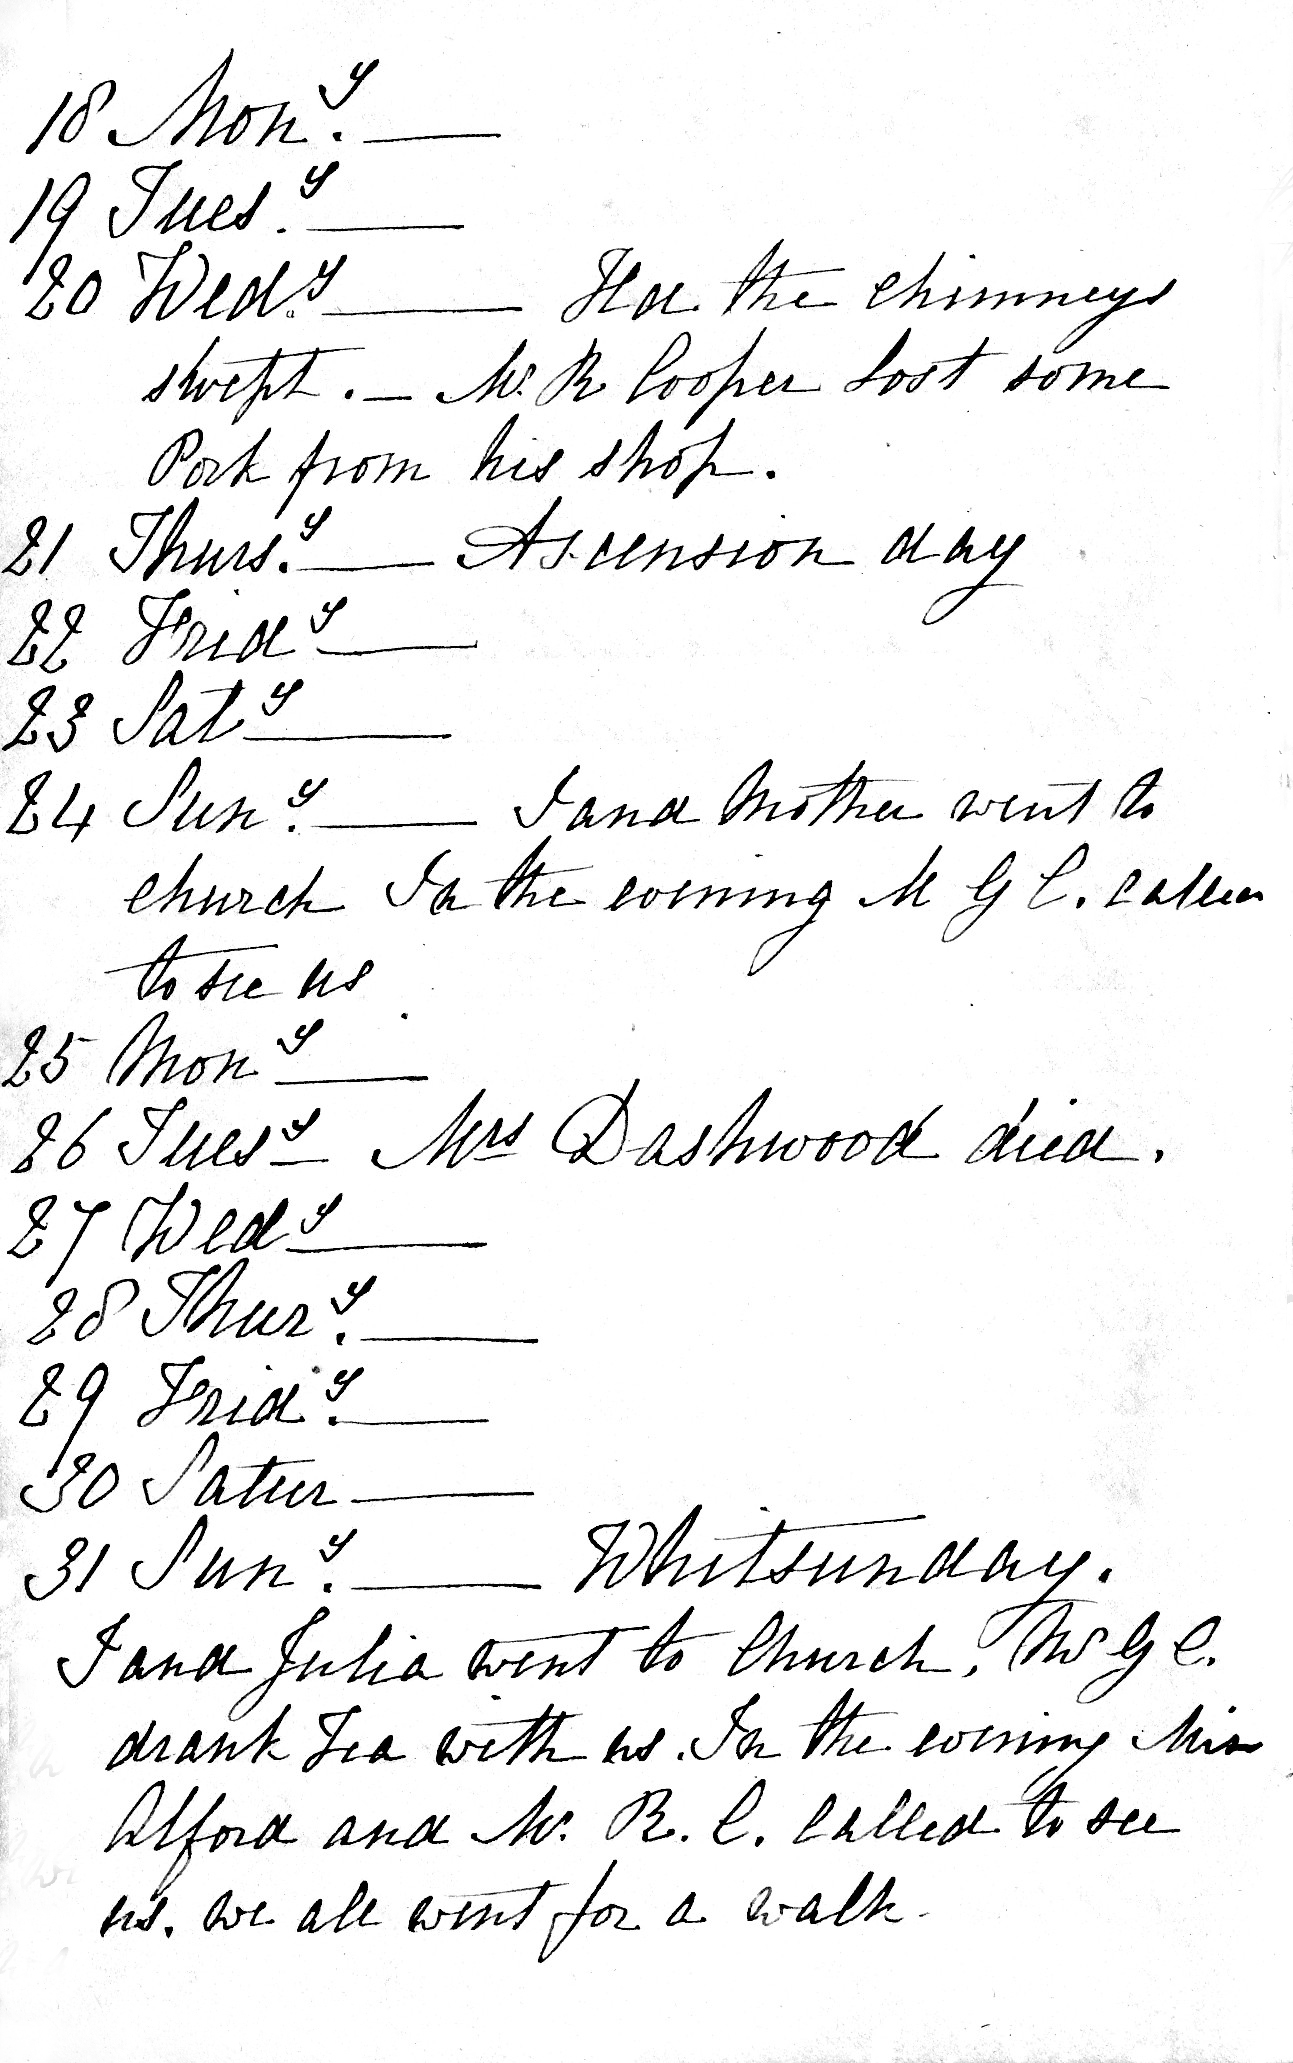 18 Mon.y ——
19 Tues.y ——
20 Wed.y —— Had the chimneys
swept. — Mr. R Cooper lost some
Pork from his shop.
21 Thurs.y —— Ascension day
22 Frid y ——
23 Sat y ——
24 Sun.y —— I and Mother went to
church In the evening M G C. called
to see us
25 Mon y ——
26 Tues y — Mrs Dashwood died.
27 Wed y ——
28 Thur.y ——
29 Frid.y ——
30 Satur ——
31 Sun.y —— Whitsunday.
I and Julia went to Church, Mr G C.
drank Tea with us. In the evening Miss
Alford and Mr. R. C. called to see
us. we all went for a walk.